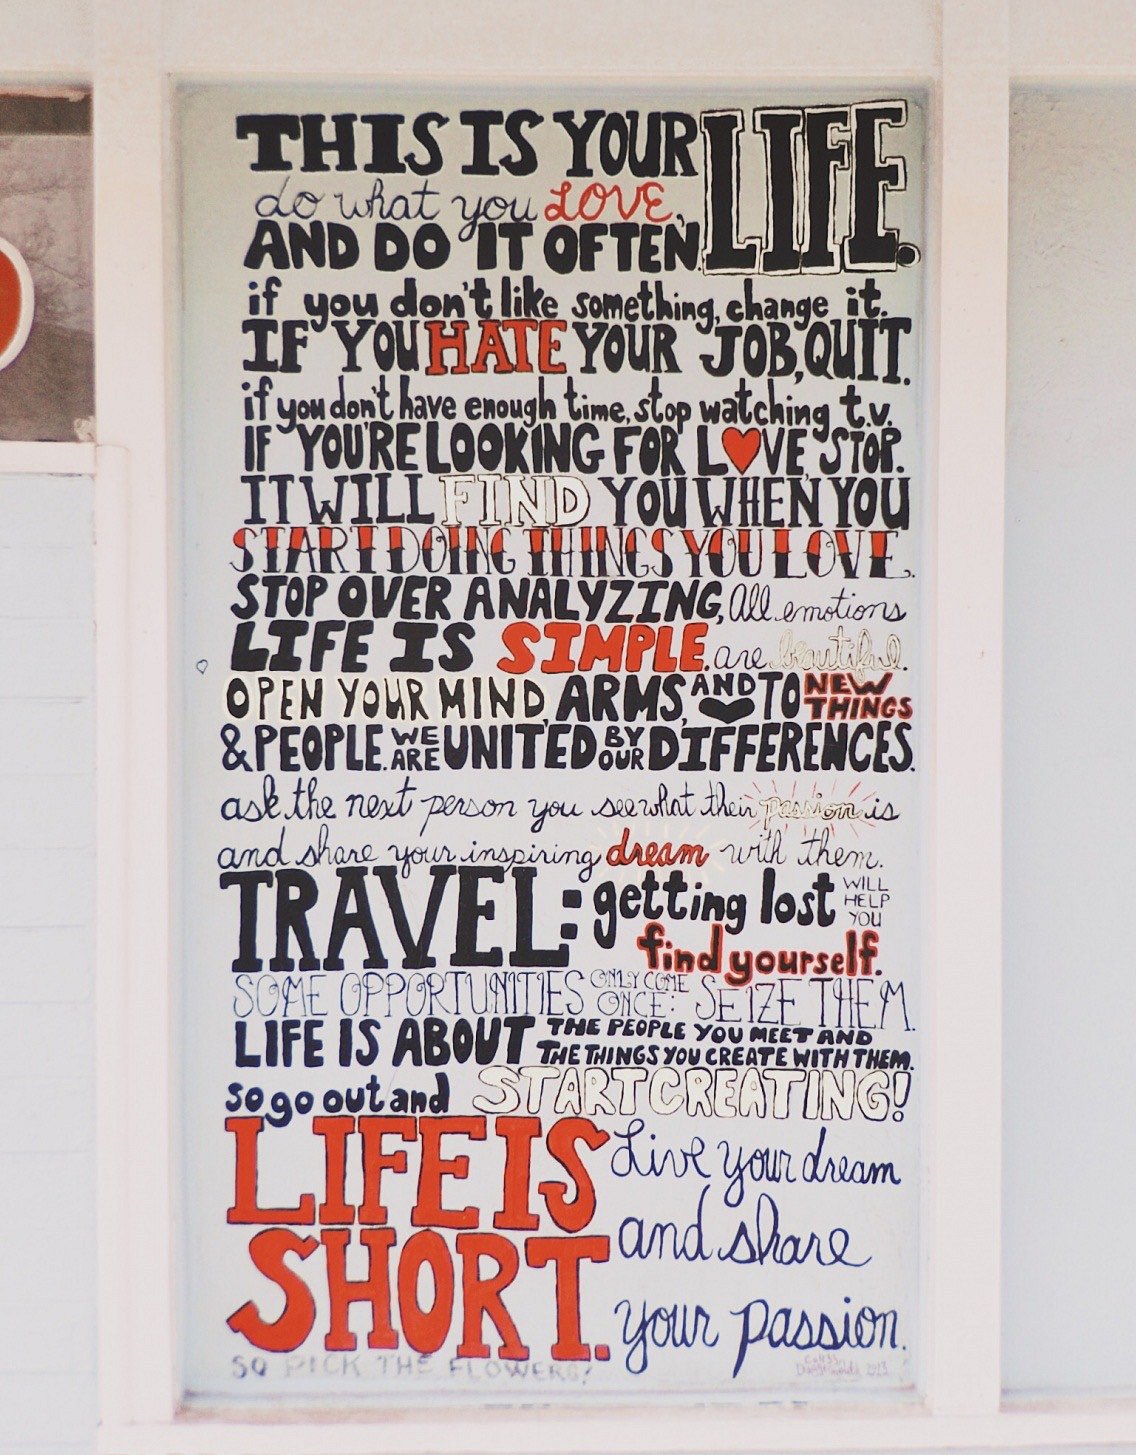 THIS IS YOUR LIFE.
do what you LOVE,
AND DO IT OFTEN.
if you don't like something, change it.
IF YOU HATE YOUR JOB, QUIT.
if you don't have enough time, stop watching t.v.
IF YOU'RE LOOKING FOR L♥VE, STOP.
IT WILL FIND YOU WHEN YOU
START DOING THINGS YOU LOVE.
STOP OVER ANALYZING,
LIFE IS SIMPLE.
All emotions
are beautiful.
OPEN YOUR MIND, ARMS, AND ♥ TO NEW THINGS
& PEOPLE. WE ARE UNITED BY OUR DIFFERENCES.
ask the next person you see what their passion is
and share your inspiring dream with them.
TRAVEL: getting lost WILL HELP YOU
find yourself.
SOME OPPORTUNITIES ONLY COME ONCE: SEIZE THEM.
LIFE IS ABOUT THE PEOPLE YOU MEET AND
THE THINGS YOU CREATE WITH THEM.
so go out and START CREATING!
LIFE IS
SHORT.
Live your dream
and share
your passion.
SO PICK THE FLOWERS!
2013